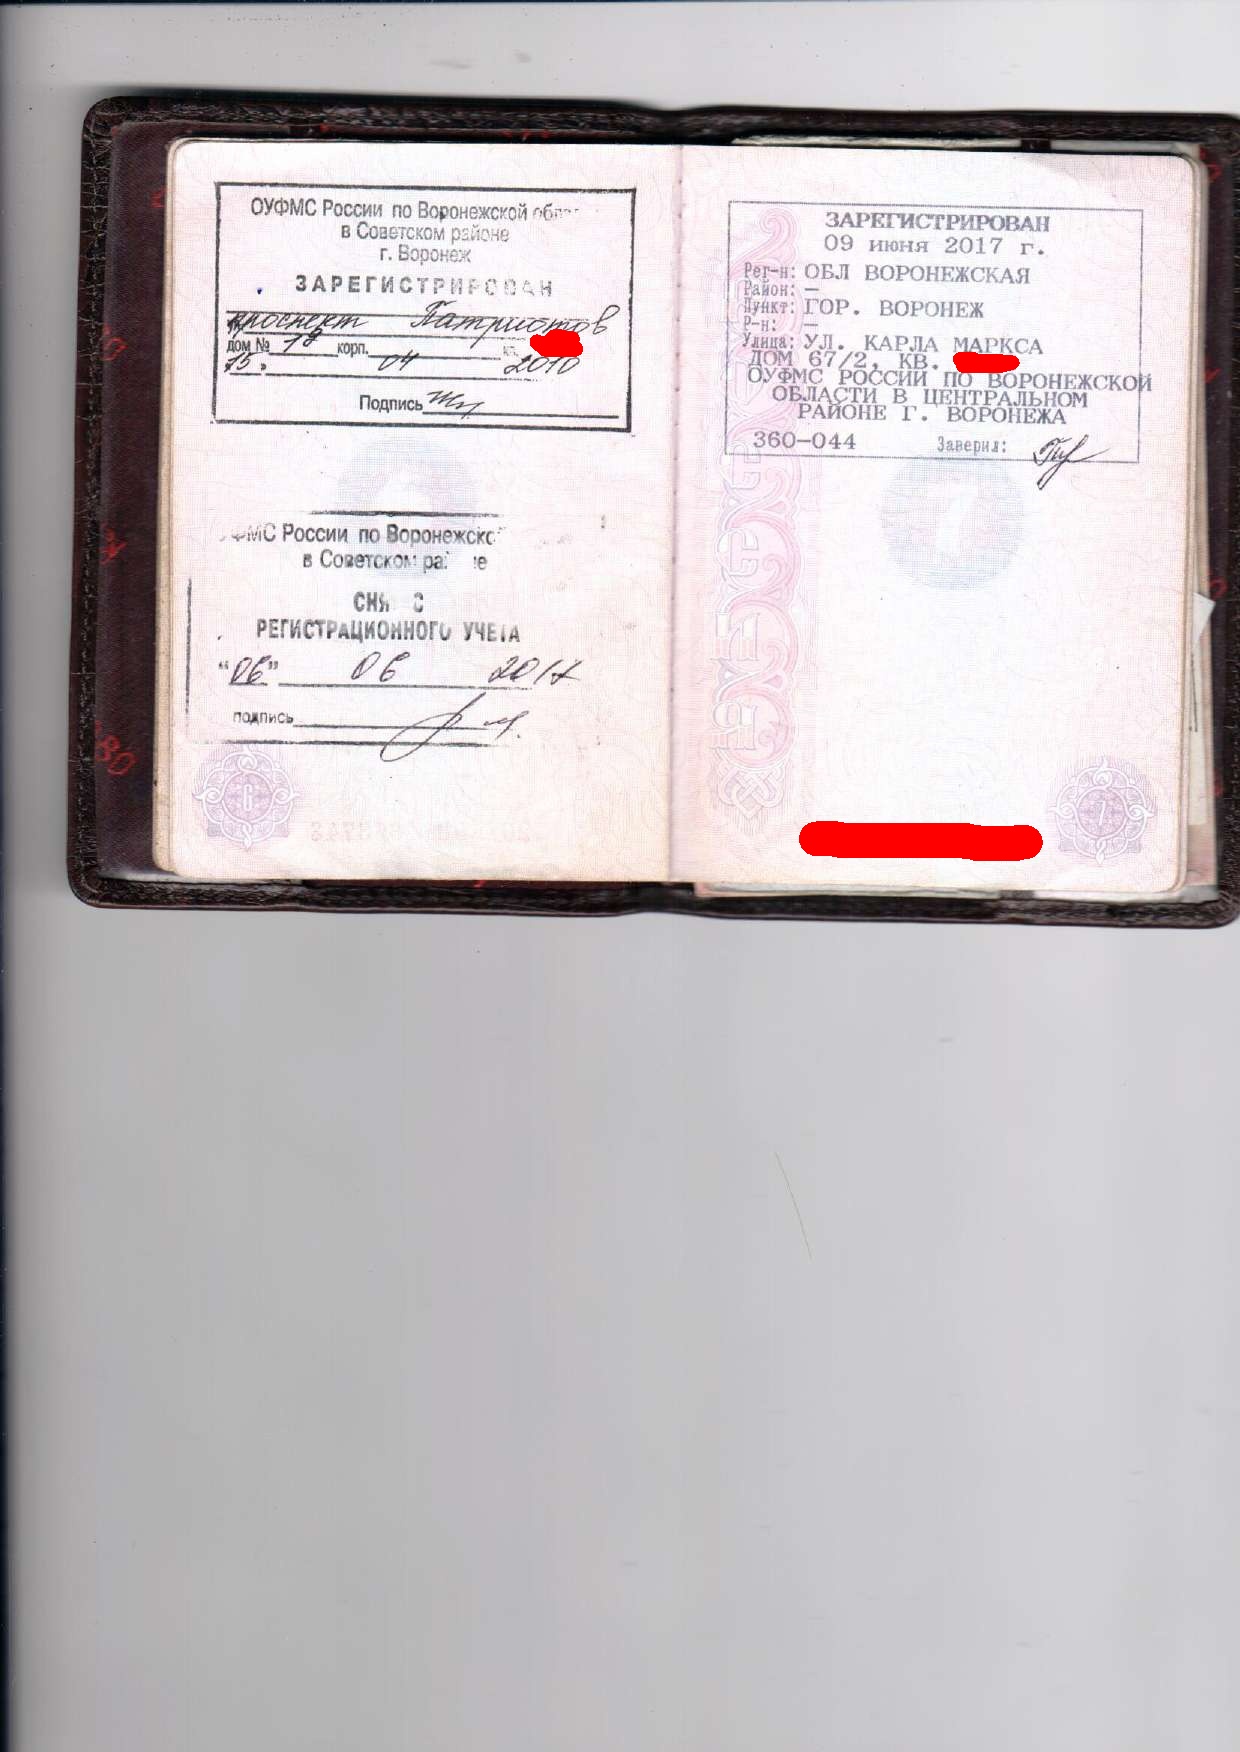 ОУФМС России по Воронежской обл
в Советском районе
г. Воронеж
ЗАРЕГИСТРИРОВАН
проспект Патриотов
дом № 18 корп.
15 04 2010
Подпись
ФМС России по Воронежско
в Советском ра е
СНЯ С
РЕГИСТРАЦИОННОГО УЧЕТА
"06" 06 2017
подпись
6
ЗАРЕГИСТРИРОВАН
09 июня 2017 г.
Рег-н: ОБЛ ВОРОНЕЖСКАЯ
Район: –
Пункт: ГОР. ВОРОНЕЖ
Р-н: –
Улица: УЛ. КАРЛА МАРКСА
ДОМ 67/2, КВ.
ОУФМС РОССИИ ПО ВОРОНЕЖСКОЙ
ОБЛАСТИ В ЦЕНТРАЛЬНОМ
РАЙОНЕ Г. ВОРОНЕЖА
360-044 Заверил:
7
7